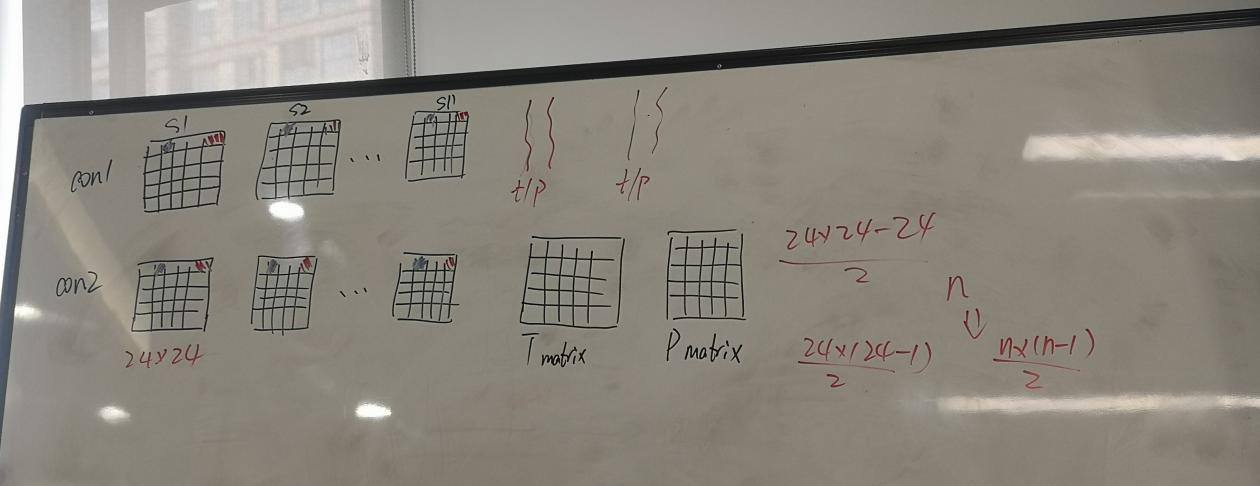 S1 S2 ... S11
con1
t/p t/p
con2 ...
24×24
T matrix P matrix
24×24-24
2
n
⇓
24×(24-1)
2
n×(n-1)
2